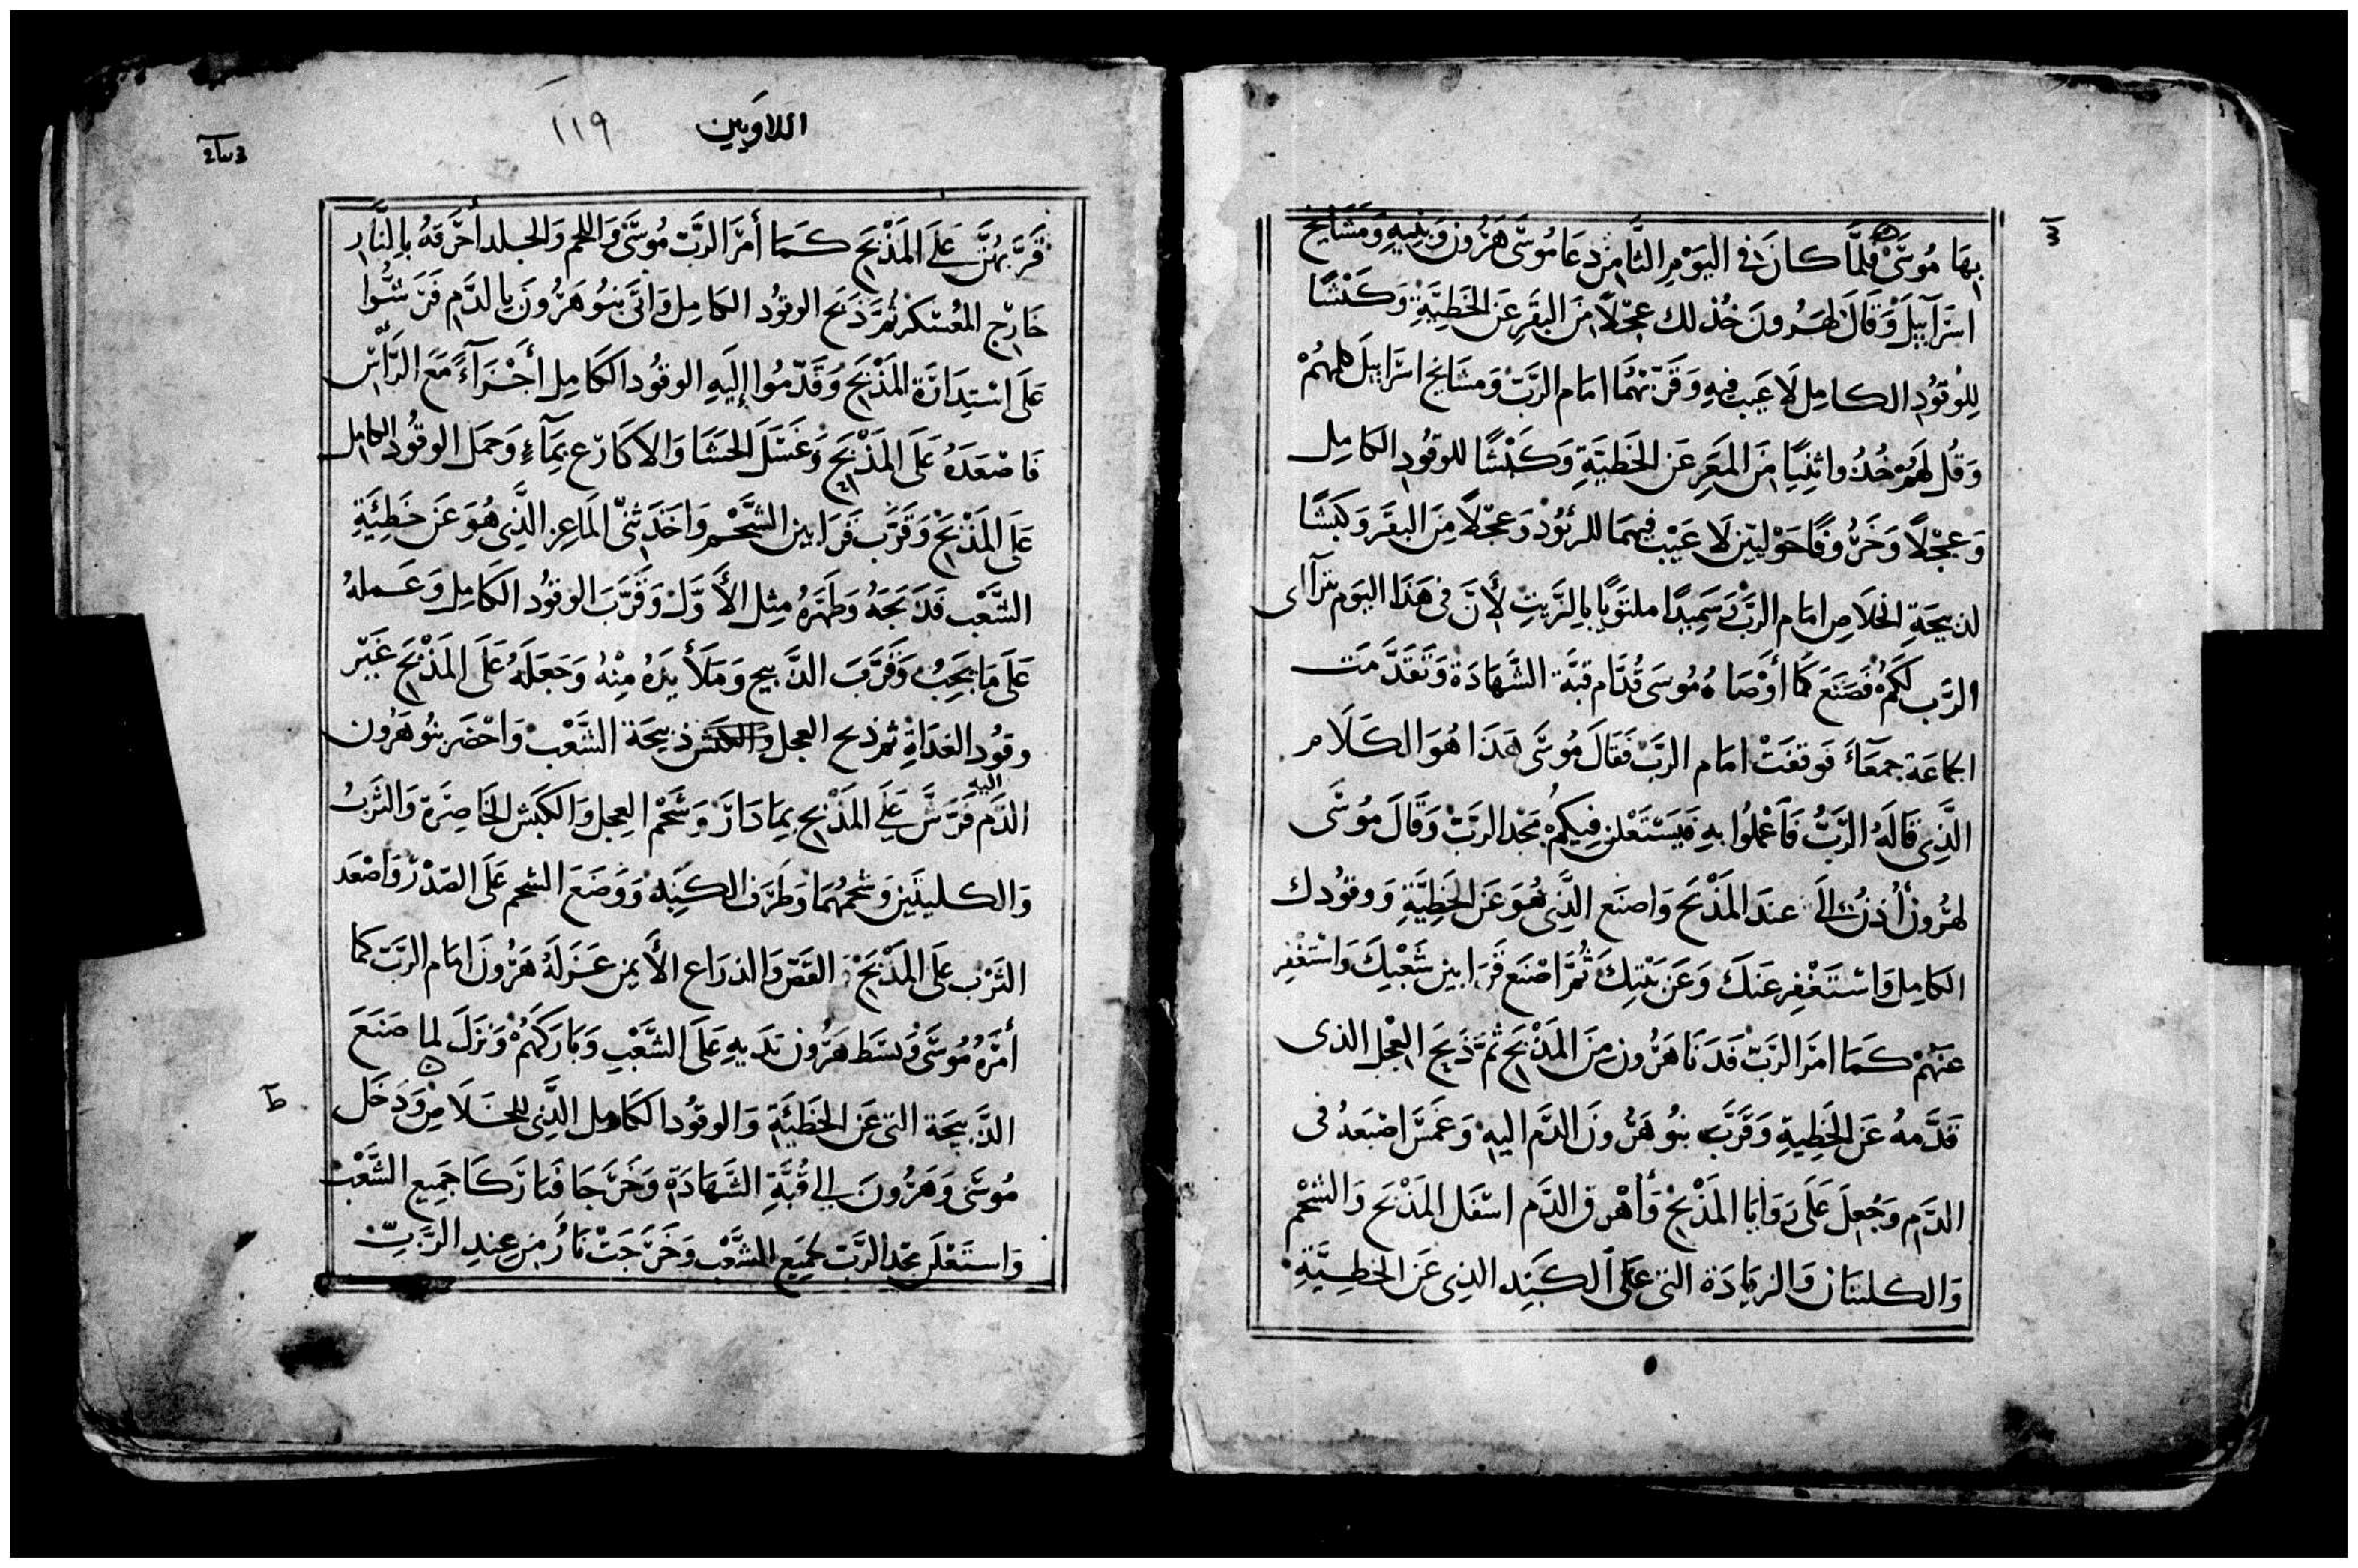 بِهَا مُوسَى فَلَمَّا كانَ فى اليَوْمِ الثَّامِن دَعَا مُوسَى هَرُونَ وَبَنِيهِ وَمَشَايِخ
اسْرَآييلْ وَقَالَ لِهَرُونَ خُذ لك عِجْلاً مِنَ البَقَرِ عَن الخَطِيَّةِ وَكَبْشًا
لِلْوَقُودِ الكامِل لَا عَيبَ فيهِ وَقَرّبْهُمَا امَام الرَّبّ وَمشَايخ اسْرَاييلَ كلهُمْ
وَقُل لهَمْ خُذُوا ثنِيًا مِنَ المَعَزِ عَن الخَطيَّةِ وَكَبْشًا للوقُودِ الكامِل
وَعِجْلاً وَخَرُوفًا حَوْليَّين لَا عَيْبَ فيهمَا للرئوُد وَعِجْلاً مِنَ البَقَر وَكَبْشًا
لذبيحَةِ الخلَاصِ امَام الرَّبْ وَسَمِيدًا ملتوَيًا بِالزَّيتِ لأَنَّ فى هَذَا اليَوم يترَآاى
الرَّب لكمُ فَصَنعَ كَمَا أوْصَاهُ مُوسَى قُدَّام قبَّة الشَّهَادَة وَتَقَدَّمَت
الجَماعَة جمعَآءَ فَوقفَتْ امَام الرَبّ فَقَالَ مُوسَى هَذَا هُوَ الكلَام
الَّذِى قَالَهُ الرَّبُّ فَآعْملُوا بهِ فَيَسْتَعْلن فِيكمُ مَجْد الرَبّ وَقَالَ مُوسَى
لهَرُون أُدْنُ إلَى عندَ المَذْبَح وَاصنَع الَّذِى هُوَ عَن الخَطِيَّةِ وَوقُودك
الكامِل وَاسْتَغْفِر عَنكَ وَعَن بَيْتِكَ ثُمَّ اصْنَع قَرَابين شَعْبِكَ وَاسْتَغْفِر
عنَهُمْ كَمَا امَرَ الرَبّ فَدَنَا هَرُون مِنَ المَذْبَحِ ثمَّ ذَبَحَ العِجْل الذى
قَدَّمهُ عَن الخَطِيةِ وَقَرَّبَ بنوُ هَرُونَ الدَّم اليهِ وَغَمَسَ اصْبَعهُ فى
الدَّم وَجُعِلَ عَلَى زَوَايَا المَذْبَح وَأهْرق الدَّم اسْفَل المَذْبَح وَالشحْم
وَالكليتَان وَالزيَادَة التى عَلَى الكَبَد الذِى عَن الخطِيَّةِ
٣
اللاويين
١١٩
قَرَّبهُنَّ عَلَى المَذْبَحِ كَمَا أمَرَ الرَّبّ مُوسَى وَاللحم وَالجلد أحْرَقَهُ بِالنَّارِ
خَارِج المُعَسْكَر ثُمَّ ذَبَح الوقُود الكامِل وَاتَى بَنُو هَرُونَ بِالدَّم فَرَشُّوا
عَلَى اسْتِدَارَة المَذْبَحِ وَقَدَّمُوا إِلَيهِ الوقُود الكَامِل أَجْزَآءً مَعَ الرَّأْسِ
فَاصْعَدَهُ عَلَى المَذْبَحِ وَغَسَلَ الحَشَا وَالاكَارِع بِمَآءٍ وَحمَل الوقُود الكامِل
عَلَى المَذْبَحِ وَقَرَّبَ قَرَابين الشَّحْم وَاخَذ ثنىّ المَاعِز الَّذِى هُوَ عَن خَطِئَةِ
الشَّعْبِ فَذَبَحَهُ وَطَهَّرَهُ مِثل الأَوَّل وَقَرَّبَ الوقُود الكَامِل وَعَملهُ
عَلَى مَا يَجِبُ وَقَرَّبَ الذَّبيح وَمَلَأ يَدَهُ مِنْهُ وَجَعَلَهُ عَلَى المَذْبَحِ غَيْر
وقُود الغدَاةِ ثم ذبح العجل والكبش ذبيحَة الشَّعْب وَاحْضَر بنُو هَرُون
اليه
الدَّم فَرَشَّ عَلَى المَذْبَحِ بِمَا دَارَ وَشَحْم العِجل وَالكَبْش الخَاصِرَة وَالثربُ
وَالكليتَين وَشحمُهمَا وَطَرَف الكَبِدْ وَوَضَعَ الشحم عَلَى الصَدْرْ وَاصْعَد
الثَرْب عَلَى المَذْبَحِ القَصّ وَالذرَاع الأَيمن عَزلَهُ هَرُونَ امَام الرَبّ كما
أمَرَهُ مُوسَى وَبسَط هَرُون يَدَيهِ عَلَى الشَّعْبِ وَبَارَكَهُمْ وَنزَلَ لما صَنَعَ
الذَّبيحَة التى عَن الخَطيَّةِ وَالوقُود الكَامِل الَّذِى للخلَاصِ وَدَخَل
مُوسَى وَهَرُونَ إلى قُبَّةِ الشَّهَادَة وَخَرَجَا فَبَارَكَا جَمِيع الشَّعْب
وَاستَعْلَن مجْد الرَّبّ لجَمِيع الشَّعْب وَخَرَجَتْ نَارُ مِن عِندِ الرَّبِّ